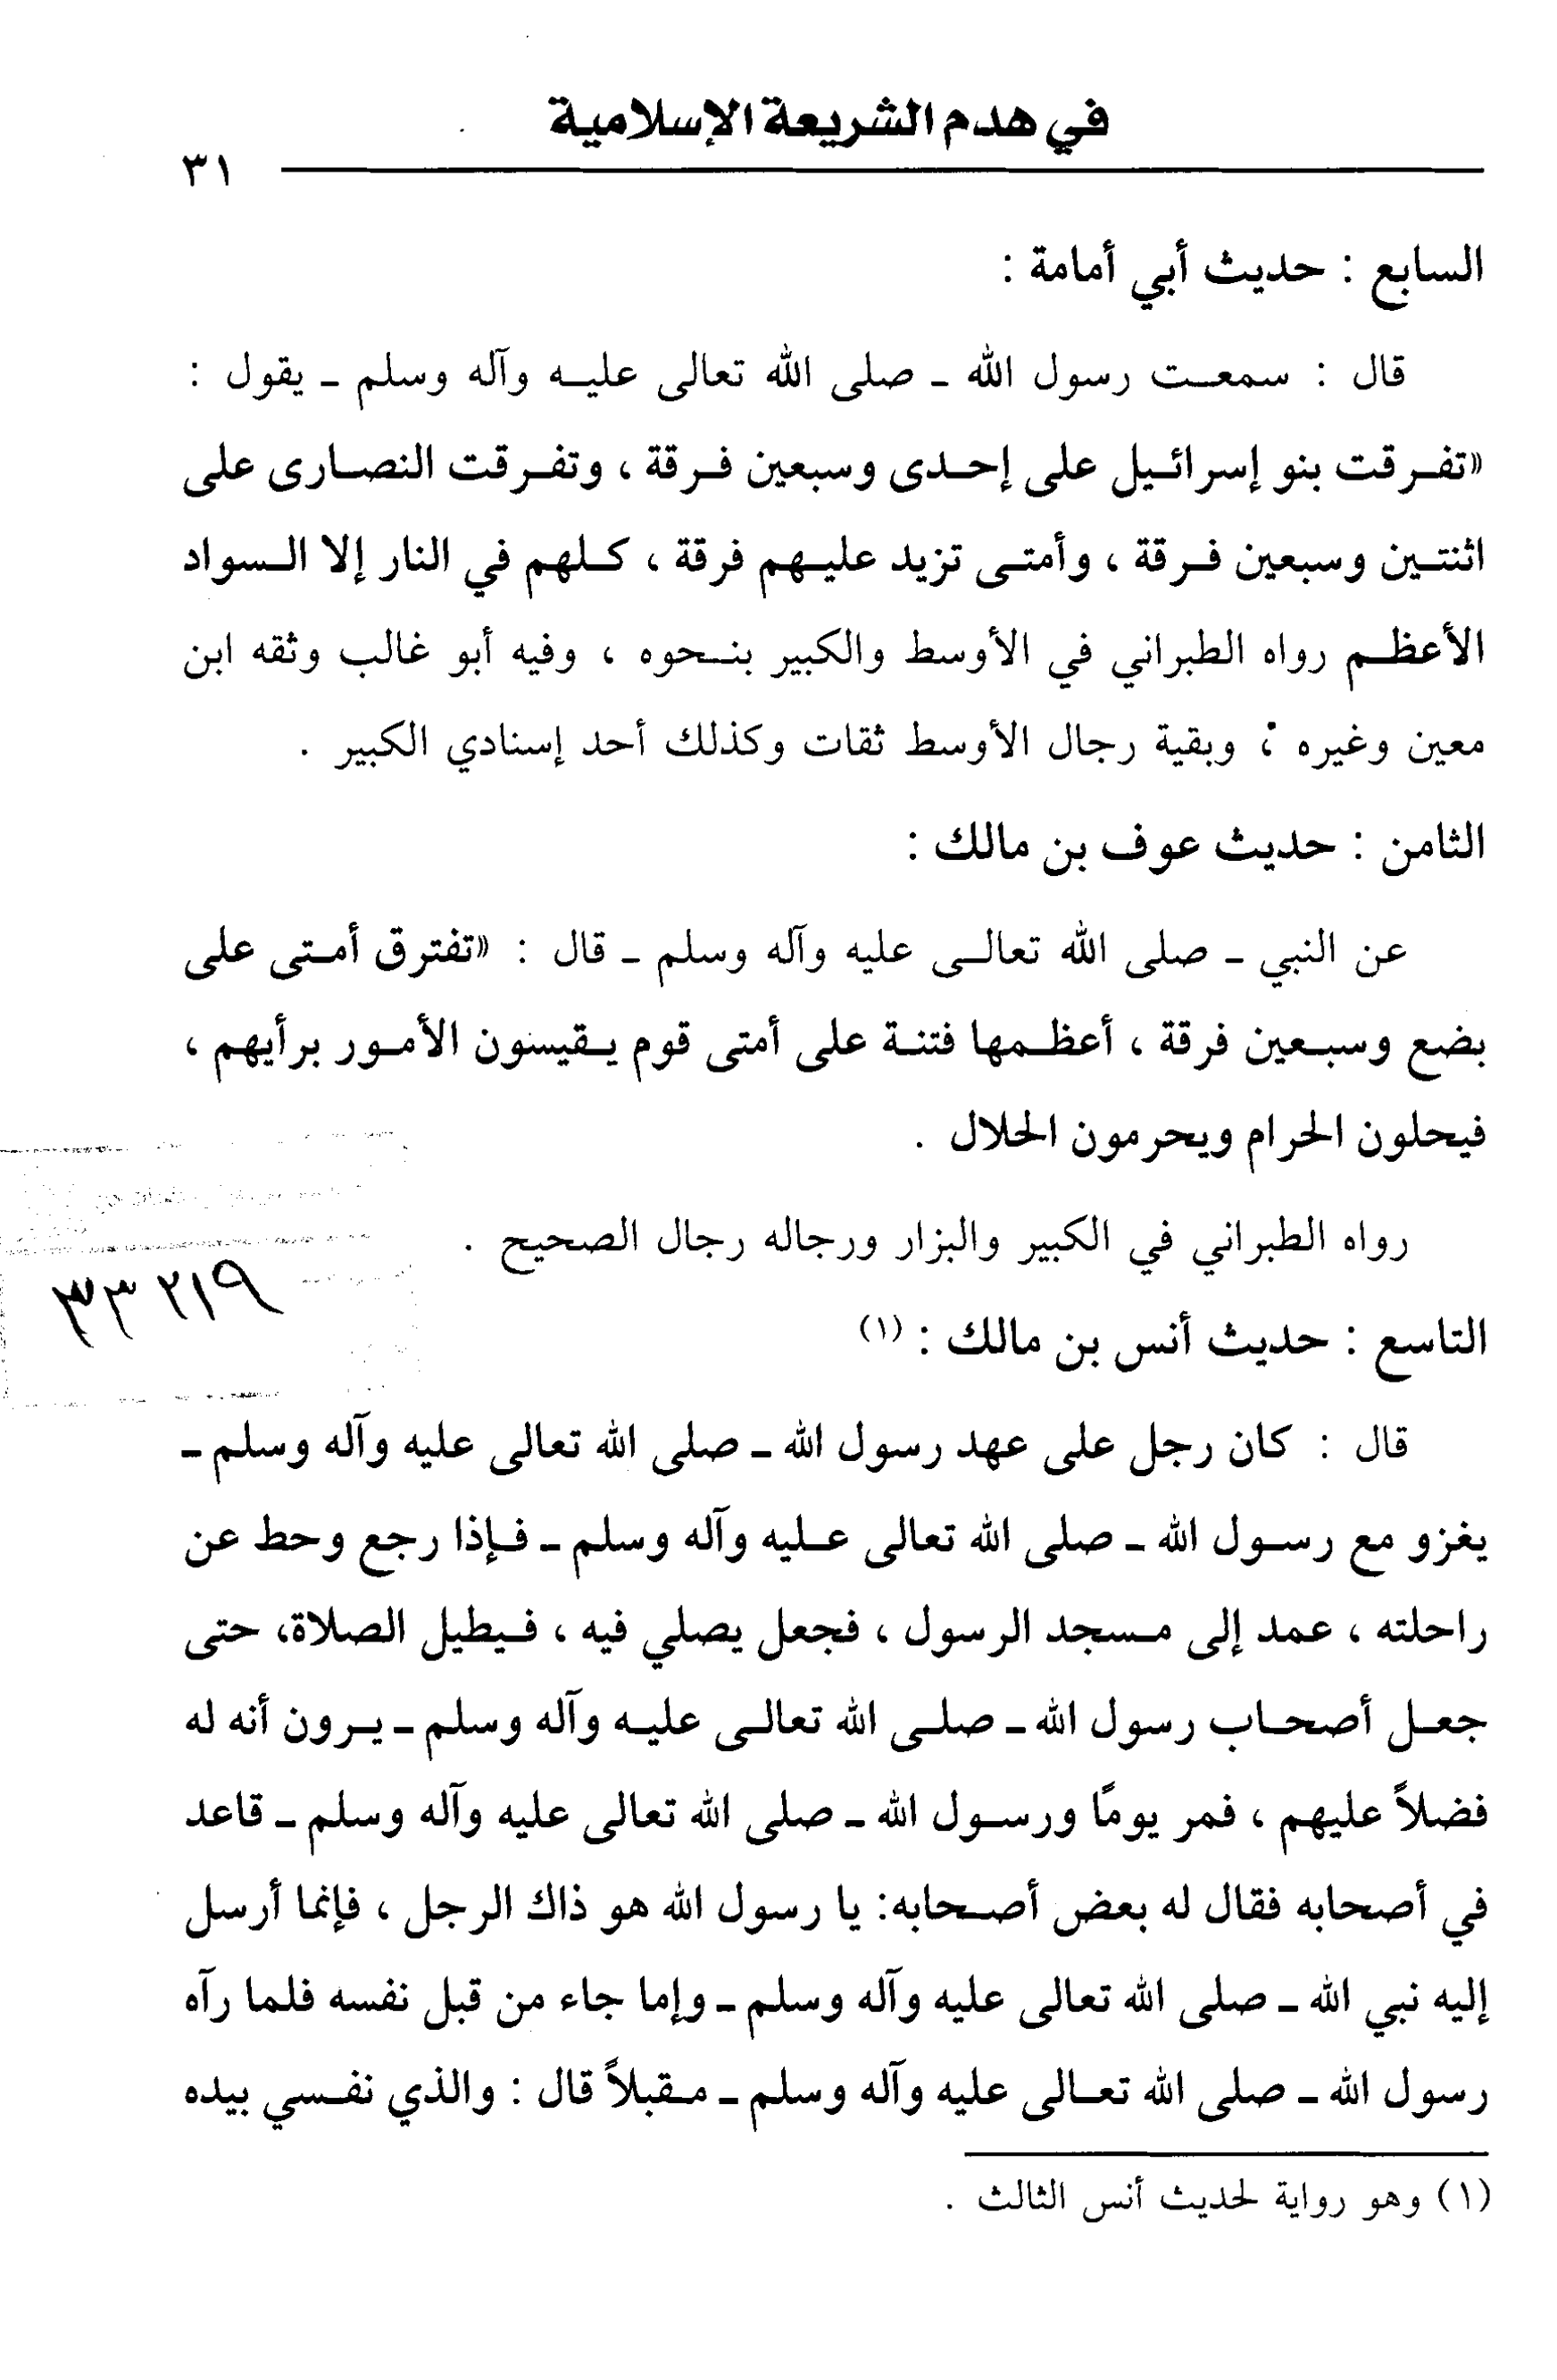 في هدم الشريعة الإسلامية
٣١
السابع : حديث أبي أمامة :
قال : سمعت رسول الله ـ صلى الله تعالى عليه وآله وسلم ـ يقول :
«تفرقت بنو إسرائيل على إحدى وسبعين فرقة ، وتفرقت النصارى على
اثنتين وسبعين فرقة ، وأمتى تزيد عليهم فرقة ، كلهم في النار إلا السواد
الأعظم رواه الطبراني في الأوسط والكبير بنحوه ، وفيه أبو غالب وثقه ابن
معين وغيره ؛ وبقية رجال الأوسط ثقات وكذلك أحد إسنادي الكبير .
الثامن : حديث عوف بن مالك :
عن النبي ـ صلى الله تعالى عليه وآله وسلم ـ قال : «تفترق أمتى على
بضع وسبعين فرقة ، أعظمها فتنة على أمتى قوم يقيسون الأمور برأيهم ،
فيحلون الحرام ويحرمون الحلال .
رواه الطبراني في الكبير والبزار ورجاله رجال الصحيح .
٣٣٢١٩
التاسع : حديث أنس بن مالك : (١)
قال : كان رجل على عهد رسول الله ـ صلى الله تعالى عليه وآله وسلم ـ
يغزو مع رسول الله ـ صلى الله تعالى عليه وآله وسلم ـ فإذا رجع وحط عن
راحلته ، عمد إلى مسجد الرسول ، فجعل يصلي فيه ، فيطيل الصلاة، حتى
جعل أصحاب رسول الله ـ صلى الله تعالى عليه وآله وسلم ـ يرون أنه له
فضلاً عليهم ، فمر يومًا ورسول الله ـ صلى الله تعالى عليه وآله وسلم ـ قاعد
في أصحابه فقال له بعض أصحابه: يا رسول الله هو ذاك الرجل ، فإنما أرسل
إليه نبي الله ـ صلى الله تعالى عليه وآله وسلم ـ وإما جاء من قبل نفسه فلما رآه
رسول الله ـ صلى الله تعالى عليه وآله وسلم ـ مقبلاً قال : والذي نفسي بيده
(١) وهو رواية لحديث أنس الثالث .